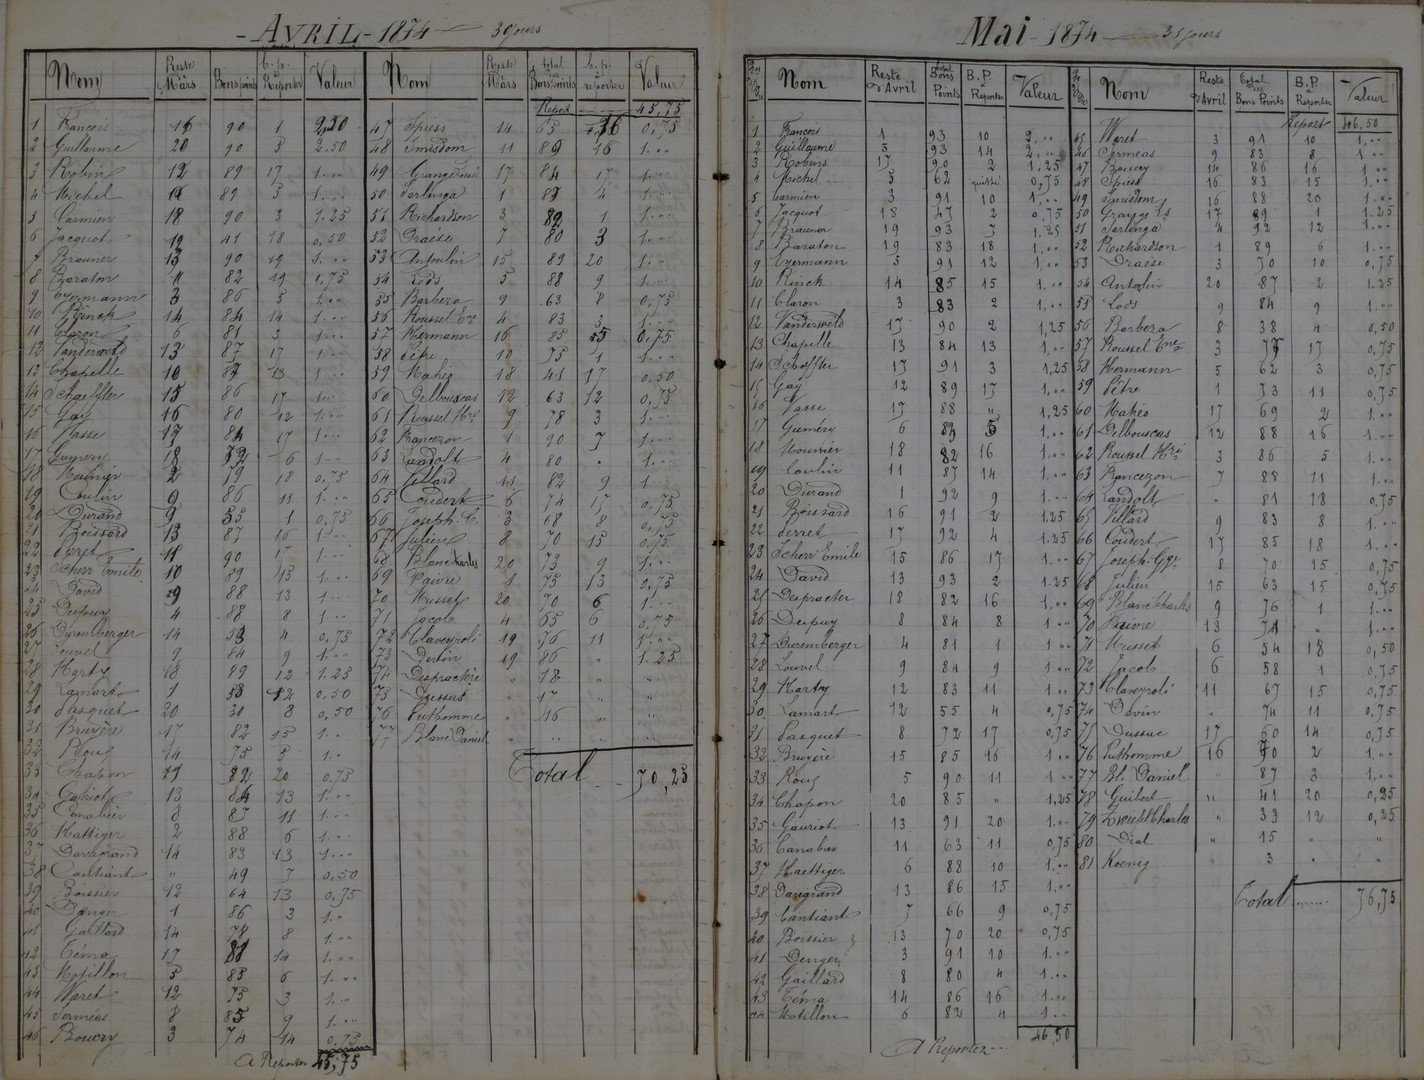 - AVRIL - 1874 — 30 jours
Nom Reste Mars Bons points b. p. à Reporter Valeur
1 François 16 90 1 2,50
2 Guillaume 20 90 3 2.50
3 Robin 12 89 17 1.
4 Michel 89 3 1.
5 Carmien 18 90 3 1.25
6 Jacquot 19 41 18 0,50
7 Brauner 13 90 19 1.
8 Baraton 11 82 19 0,75
9 Evermann 3 86 5 1.
10 Rinck 14 84 14 1.
11 Claron 6 81 3 1.
12 Vanderweld 13 87 17 1.
13 Chapelle 10 87 13 1.
14 Schoeffter 15 86 17 1.
15 Gay 16 80 12 1.
16 Vasse 17 84 17 1.
17 Guméry 18 6 1.
18 Mounier 2 79 18 0,75
19 Coulin 9 86 11 1.
20 Durand 9 55 1 0,75
21 Boissard 13 87 16 1.
22 Jerret 11 90 17 1.
23 Scherr Emile 10 89 15 1.
24 David 9 88 13 1.
25 Despuey 4 88 8 1.
26 Duremberger 14 53 4 0,75
27 Louvel 9 84 9 1.
28 Hartz 18 89 12 1.25
29 Lamart 1 58 12 0,50
30 Pasquet 20 30 8 0,50
31 Bruyère 17 82 15 1.
32 Roux 14 75 3 1.
33 Chapon 11 82 20 0,75
34 Gauriot 13 84 13 1.
35 Canabier 8 87 11 1.
36 Haettiger 2 88 6 1.
37 Daregrand 14 83 13 1.
38 Cantiant " 49 7 0,50
39 Boissier 12 64 13 0,75
40 Denger 1 86 3 1.
41 Gaillard 14 78 8 1.
42 Téma 17 81 14 1.
43 Motillon 5 85 6 1.
44 Waret 12 75 3 1.
45 Serméas 8 85 9 1.
46 Boucry 3 74 14 0,75
A Reporter 45,75
Nom Reste Mars total des Bons points b. p. à reporter Valeur
Report 45,75
47 Spiess 14 65 16 0,75
48 Smisdom 11 89 16 1.
49 Grangé 17 84 17 1.
50 Serlinga 1 87 4 1.
51 Richardson 3 89 1 1.
52 Draëse 7 80 3 1.
53 Antoulin 15 89 20 1.
54 Loos 5 88 9 1.
55 Barbera 9 63 8 0,75
56 Roussel Ene 4 83 3 1.
57 Hermann 16 85 5 0,75
58 Lêtre 10 75 1 1.
59 Mahéo 18 41 17 0,50
60 Delbouscas 12 63 12 0,75
61 Roussel Hri 9 78 3 1.
62 Francezon 1 90 7 1.
63 Landolt 4 80 . 1.
64 Villard 11 82 9 1
65 Coudert 6 74 17 0,75
66 Joseph. C. 3 68 8 0,75
67 Julien 8 70 15 0,75
68 Blanc Charles 20 73 9 1.
69 Faivre 1 75 13 0,75
70 Musset 20 70 6 1.
71 Jacob 4 65 6 0,75
72 Claveyrol 19 76 11 1.
73 Davin 19 86 . 1.25
74 Despracter " 18 " "
75 Dussuc " 17 " "
76 Puthomme " 16 " "
77 Blanc Daniel " " " "
Total 70,25
Mai - 1874 — 31 jours
Nom Reste d'Avril total Bons Points B.P. à Reporter Valeur
1 François 1 93 10 2,
2 Guillaume 5 93 14 2,
3 Robins 17 90 2 1,25
4 Michel 3 62 quitté 0,75
5 Carmien 3 91 10 1,
6 Jacquot 18 47 2 0,75
7 Brauner 19 93 7 1.25
8 Baraton 19 83 18 1.
9 Evermann 5 91 12 1,
10 Rinck 14 85 15 1.
11 Claron 3 83 2 1.
12 Vanderweld 17 90 2 1,25
13 Chapelle 13 84 13 1,
14 Schoffter 17 91 3 1,25
15 Gay 12 89 17 1.
16 Vasse 17 88 " 1,25
17 Guméry 6 84 5 1.
18 Mounier 18 82 16 1.
19 Coulin 11 87 14 1.
20 Durand 1 92 9 1.
21 Boissard 16 91 2 1.25
22 Jerret 17 92 4 1.25
23 Scherr Emile 15 86 17 1.
24 David 13 93 2 1.25
25 Despracter 18 82 16 1.
26 Despuy 8 84 8 1.
27 Duremberger 4 81 1 1
28 Louvel 9 84 9 1
29 Hartz 12 83 11 1
30 Lamart 12 55 4 0,75
31 Pasquet 8 72 17 0,75
32 Bruyère 15 85 16 1.
33 Roux 5 90 11 1
34 Chapon 20 85 " 1,25
35 Gauriot 13 91 20 1.
36 Canabier 11 63 11 0,75
37 Haettiger 6 88 10 1.
38 Daregrand 13 86 15 1.
39 Cantiant 7 66 9 0,75
40 Boissier 13 70 20 0,75
41 Denger 3 91 10 1.
42 Gaillard 8 80 4 1.
43 Téma 14 86 16 1.
44 Motillon 6 82 4 1.
A Reporter 46,50
Nom Reste d'Avril total des Bons Points B.P. à Reporter Valeur
Report 46,50
45 Waret 3 91 10 1.
46 Serméas 9 83 8 1
47 Boucry 14 86 16 1
48 Spiess 16 83 15 1.
49 Smisdom 16 88 20 1.
50 Grangé 17 89 1 1.25
51 Serlinga 4 92 12 1.
52 Richardson 1 89 6 1.
53 Draëse 3 70 10 0,75
54 Antoulin 20 87 2 1.25
55 Loos 9 84 9 1.
56 Barbera 8 38 4 0,50
57 Roussel Ene 3 77 17 0,75
58 Hermann 5 62 3 0,75
59 Lêtre 1 73 11 0,75
60 Mahéo 17 69 2 1.
61 Delbouscas 12 88 16 1.
62 Roussel Hri 3 86 5 1.
63 Francezon 7 88 11 1.
64 Landolt . 81 18 0,75
65 Villard 9 83 8 1.
66 Coudert 17 85 18 1.
67 Joseph 8 70 15 0,75
68 Julien 15 63 15 0,75
69 Blanc Charles 9 76 1 1.
70 Faivre 13 74 " 1.
71 Musset 6 54 18 0,50
72 Jacob 6 58 1 0,75
73 Claveyrol 11 67 15 0,75
74 Davin " 74 11 0,75
75 Dussuc 17 60 14 0,75
76 Puthomme 16 70 2 1.
77 Bl. Daniel " 87 3 1.
78 Guibert " 41 20 0,25
79 Charles " 33 12 0,25
80 Dial " 15 " "
81 Koenig " 3 . "
Total 76,75